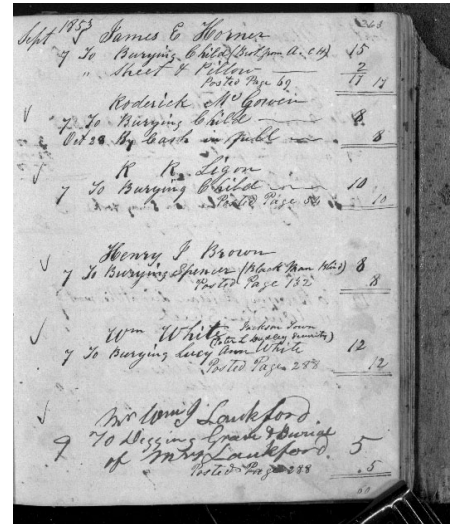 Sept 1853
James E Horner
7 To Burying Child (Brot from A. C H) 15
" Sheet & Pillow 2
Posted Page 69 17 17
Roderick McGowen
7 To Burying Child 8
Oct 28 By Cash in full 8
R R. Ligon
7 To Burying Child 10
Posted Page 10
Henry J Brown
7 To Burying Spencer (Black Man Hired) 8
Posted Page 152 8
Wm White Jackson Town
7 To Burying Lucy Ann White 12
Posted Page 288 12
Mr Wm J Lankford
9 To Digging Grave & Burial 5
of Mrs Lankford
Posted Page 288 5